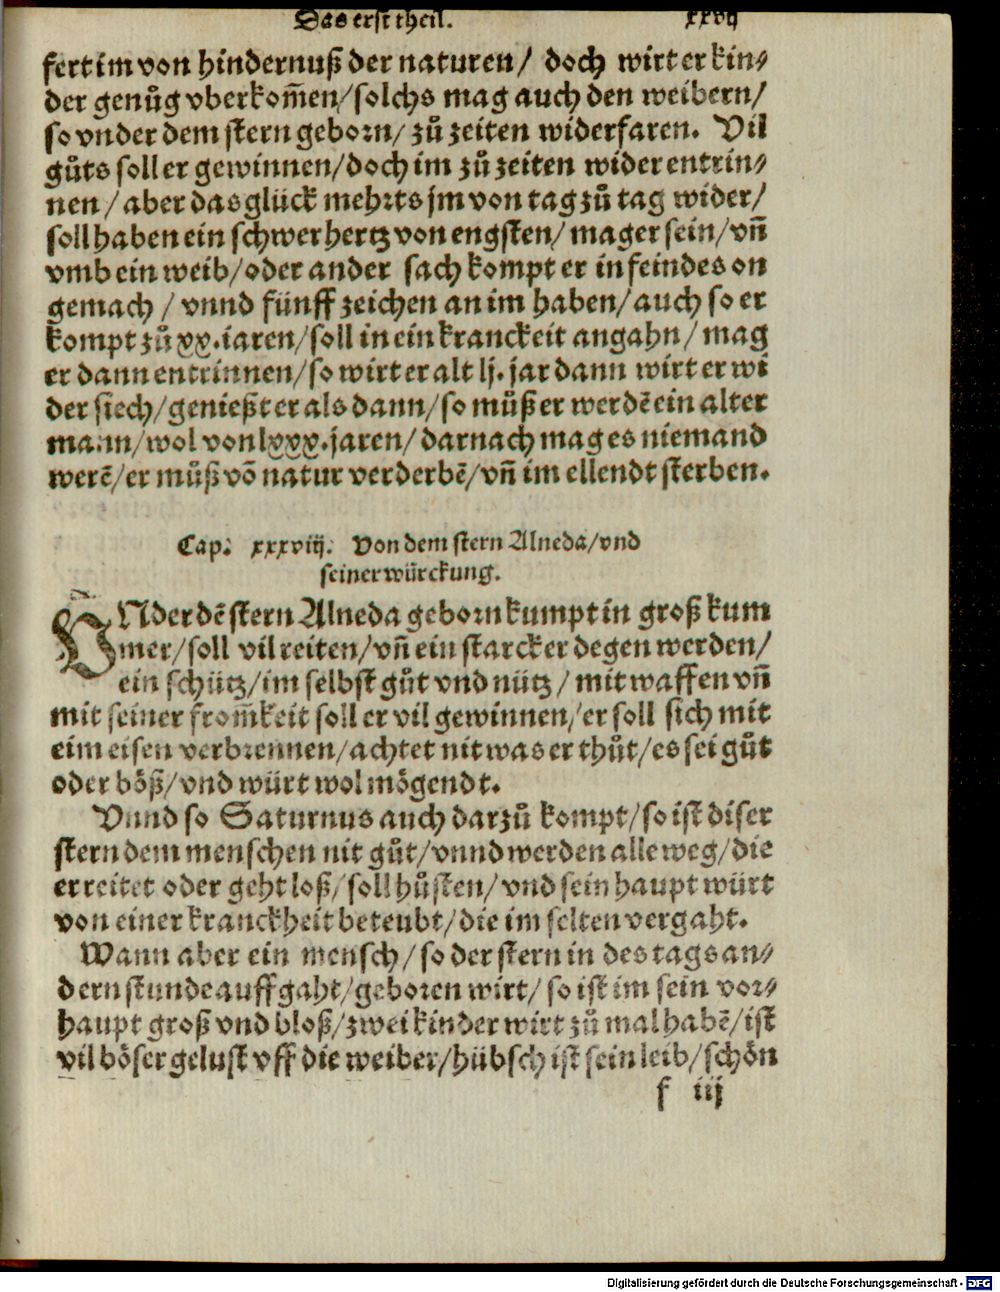 Das erst theil. xxvij
fert im von hindernuß der naturen / doch wirt er kin⸗
der genůg vberkom̄en / solchs mag auch den weibern /
so vnder dem stern geborn / zů zeiten widerfaren. Vil
gůts soll er gewinnen / doch im zů zeiten wider entrin⸗
nen / aber das glück mehrts jm von tag zů tag wider /
soll haben ein schwer hertz von engsten / mager sein / vn̄
vmb ein weib / oder ander sach kompt er in feindes on
gemach / vnnd fünff zeichen an im haben / auch so er
kompt zů xx. iaren / soll in ein kranckeit angahn / mag
er dann entrinnen / so wirt er alt lj. jar dann wirt er wi
der siech / genießt er als dann / so můß er werdē ein alter
mann / wol von lxxx. jaren / darnach mag es niemand
werē / er můß vō natur verderbē / vn̄ im ellendt sterben.
Cap. xxxviij. Von dem stern Alneda / vnd
seiner würckung.
VNder dē stern Alneda geborn kumpt in groß kum
mer / soll vil reiten / vn̄ ein starcker degen werden /
ein schütz / im selbst gůt vnd nütz / mit waffen vn̄
mit seiner from̄keit soll er vil gewinnen / er soll sich mit
eim eisen verbrennen / achtet nit was er thůt / es sei gůt
oder böß / vnd würt wol mögendt.
Vnnd so Saturnus auch darzů kompt / so ist diser
stern dem menschen nit gůt / vnnd werden alle weg / die
er reitet oder geht loß / soll hůsten / vnd sein haupt würt
von einer kranckheit beteubt / die im selten vergaht.
Wann aber ein mensch / so der stern in des tags an⸗
dern stunde auffgaht / geboren wirt / so ist im sein vor⸗
haupt groß vnd bloß / zwei kinder wirt zů mal habē / ist
vil böser gelust vff die weiber / hübsch ist sein leib / schön
f iij
Digitalisierung gefördert durch die Deutsche Forschungsgemeinschaft - DFG